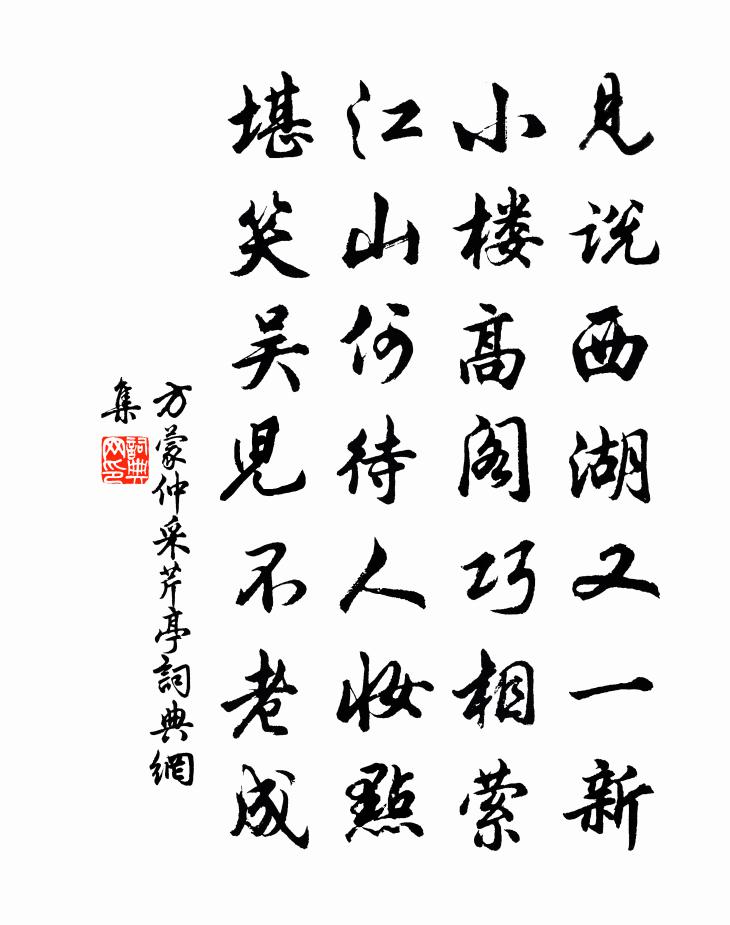 見说西湖又一新
小楼高阁巧相萦
江山何待人妆點
堪笑吴兒不老成
方蒙仲采芹亭詞典網
集
詞典
网印